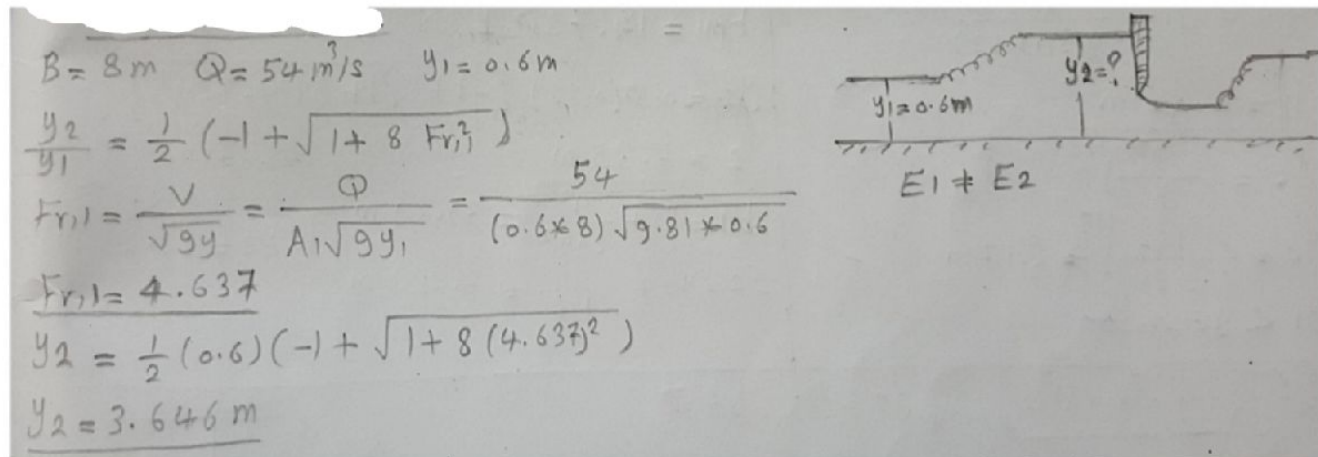 B= 8m Q= 54 m³/s y1 = 0.6m
y2/y1 = 1/2 (-1 + √(1+ 8 Fr,1²))
Fr,1 = V/√gy = Q/(A1√gy1) = 54/((0.6*8)√(9.81*0.6))
Fr,1= 4.637
y2 = 1/2 (0.6)(-1 + √(1+ 8 (4.637)²))
y2 = 3.646 m
y1=0.6m
y2=?
E1 ≠ E2